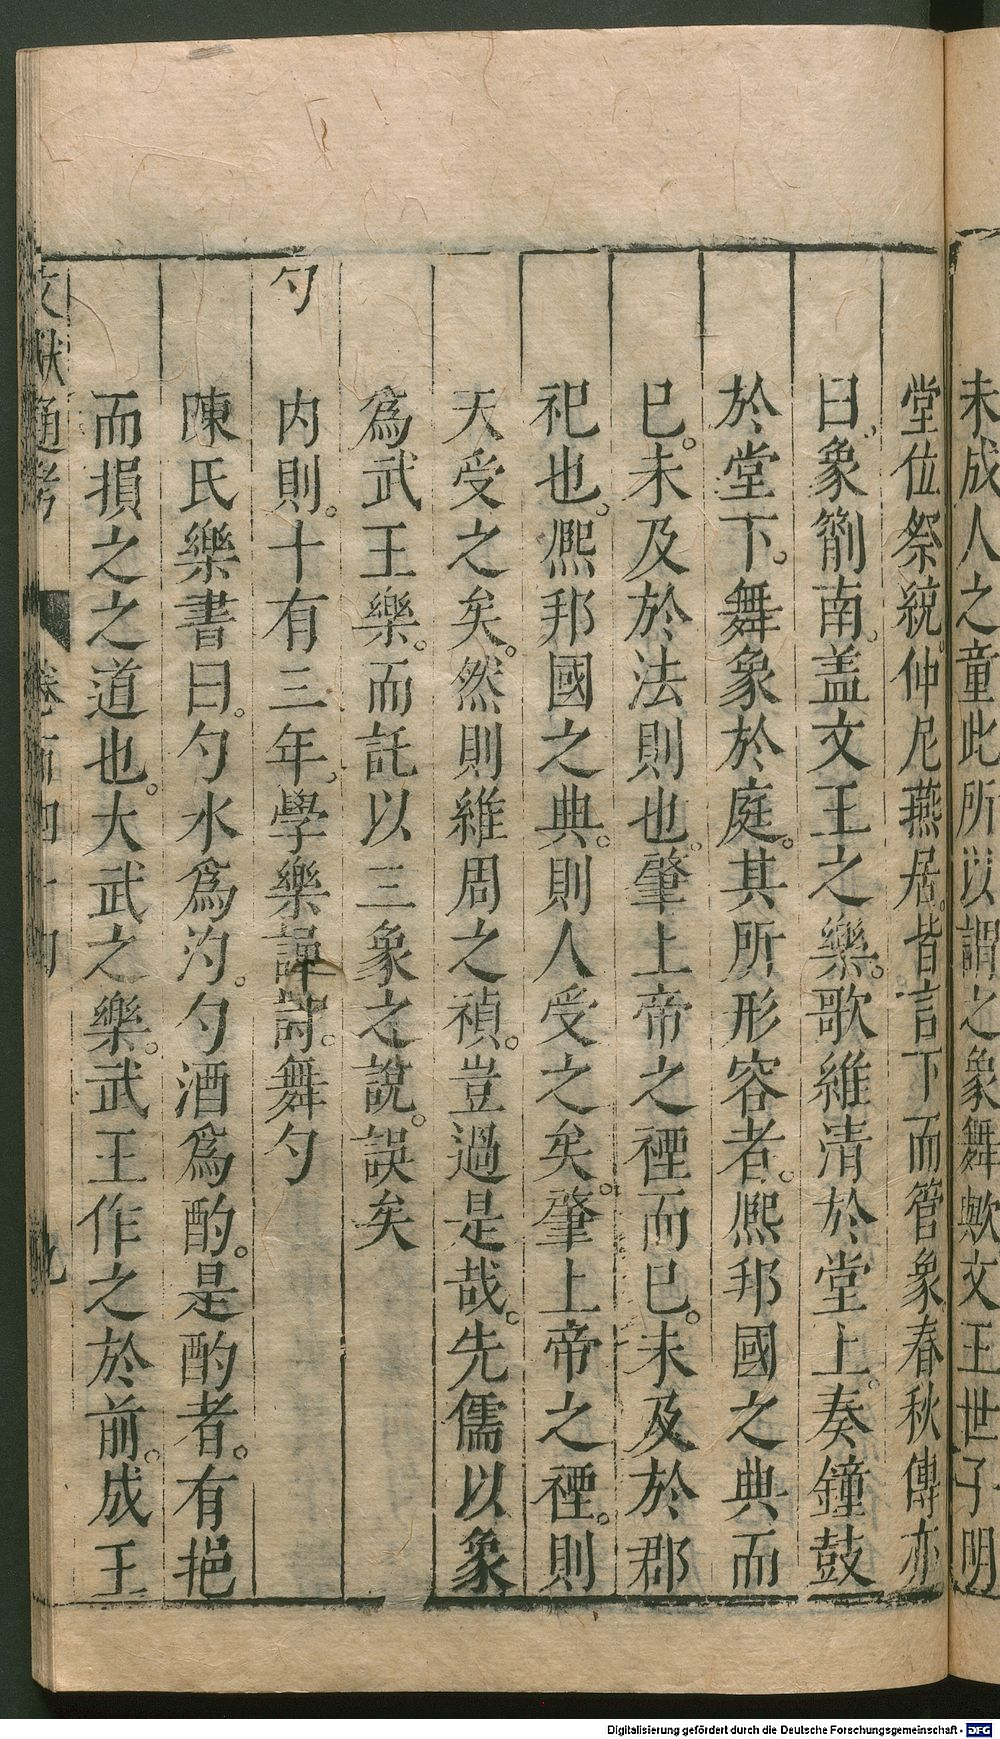 未成人之童此所以謂之象舞歟文王世子明
堂位祭統仲尼燕居皆言下而管象春秋傳亦
曰象箾南。盖文王之樂。歌維清於堂上。奏鐘鼓
於堂下。舞象於庭。其所形容者。熈邦國之典而
已。未及於法則也。肇上帝之禋而已。未及於郡
祀也。熈邦國之典。則人受之矣。肇上帝之禋。則
天受之矣。然則維周之禎。豈過是哉。先儒以象
爲武王樂。而託以三象之說。誤矣
勺
内則。十有三年。學樂誦詩。舞勺
陳氏樂書曰。勺水爲汋。勺酒爲酌。是酌者。有挹
而損之之道也。大武之樂。武王作之於前。成王
文獻通考 卷一百四十四 九
Digitalisierung gefördert durch die Deutsche Forschungsgemeinschaft - DFG